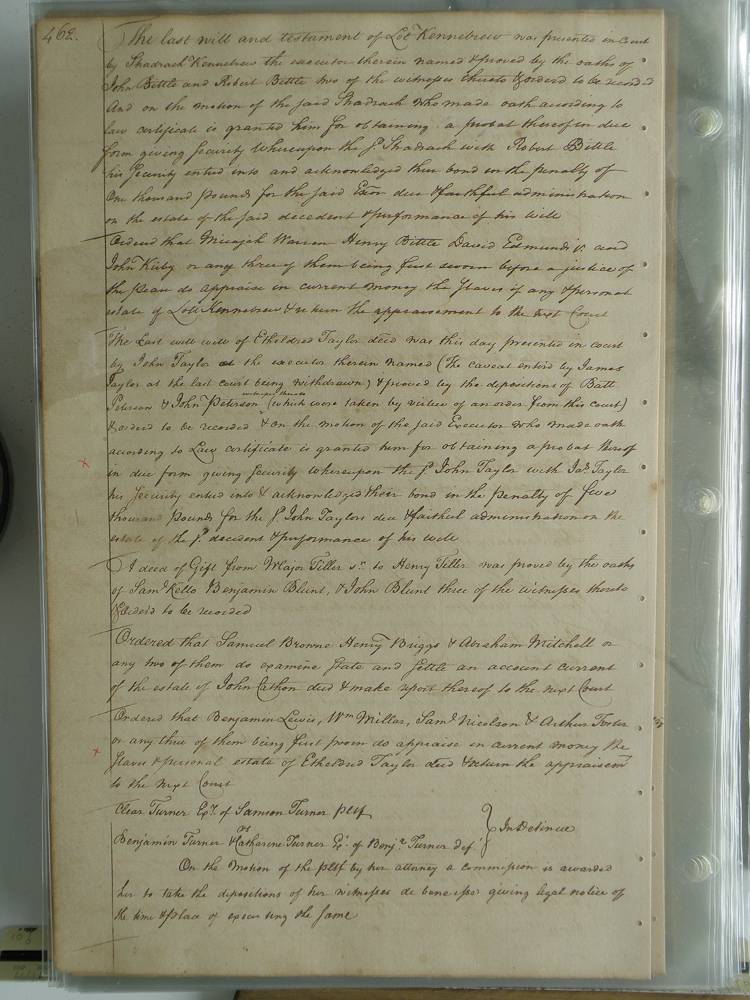 462.
The last will and testament of Lot Kennebrew was presented in Court
by Shadrach Kennebrew the executor therein named & proved by the oaths of
John Bittle and Robert Bittle two of the witnesses thereto & orderd to be recorded
And on the motion of the said Shadrach who made oath according to
law certificate is granted him for obtaining a probat thereof in due
form giving security Whereupon the sd Shadrach with Robert Bittle
his security entred into and acknowledged their bond in the penalty of
One thousand pounds for the said Exors due & faithful administration
on the estate of the said decedent & performance of his will
Ordered that Micajah Warren Henry Bittle David Edmunds and
John Kirby or any three of them being first sworn before a justice of
the peace do appraise in current money the slaves if any & personal
estate of Lott Kennebrew & return the appraisement to the next Court
The Last will will of Etheldred Taylor deced was this day presented in court
by John Taylor the executor therein named (The caveat entred by James
Taylor at the last court being withdrawn) & proved by the depositions of Batt
Peterson & John Peterson witnesses thereto (which were taken by virtue of an order from this court)
& orderd to be recorded & on the motion of the said Executor who made oath
according to Law certificate is granted him for obtaining a probat thereof
in due form giving security whereupon the sd John Taylor with Taylor
his security entred into & acknowledged their bond in the penalty of five
thousand pounds for the sd John Taylors due & faithful administration on the
estate of the sd decedent & performance of his will
A deed of Gift from Major Tiller sr to Henry Tiller was proved by the oaths
of Saml Kello Benjamin Blunt, & John Blunt three of the witnesses thereto
& orderd to be recorded
Ordered that Samuel Browne Henry Briggs & Abraham Mitchell or
any two of them do examine state and settle an account current
of the estate of John Cathon deced & make report thereof to the next Court
Ordered that Benjamin Lewis, Wm Millar, Saml Nicolson & Arthur Foster
or any three of them being first sworn do appraise in current money the
slaves & personal estate of Etheldred Taylor deced & return the appraisemt
to the next Court
Clear Turner Exr of Samson Turner pltf
vs } In Detinue
Benjamin Turner & Catharine Turner Exr of Benja Turner def
On the Motion of the pltf by her attorney a commission is awarded
her to take the depositions of her witnesses de bene esse giving legal notice of
the time & place of executing the same